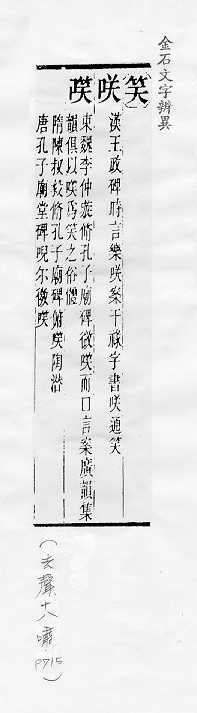 金石文字辨異
笑 咲 𠸍
漢王政碑時言樂咲案干祿字書咲通笑
東魏李仲璇脩孔子廟碑微𠸍而口言案廣韻集
韻俱以咲為笑之俗體
隋陳叔毅脩孔子廟碑俯𠸍陶浩
唐孔子廟堂碑晲尔微𠸍
(去聲十八嘯
P715)